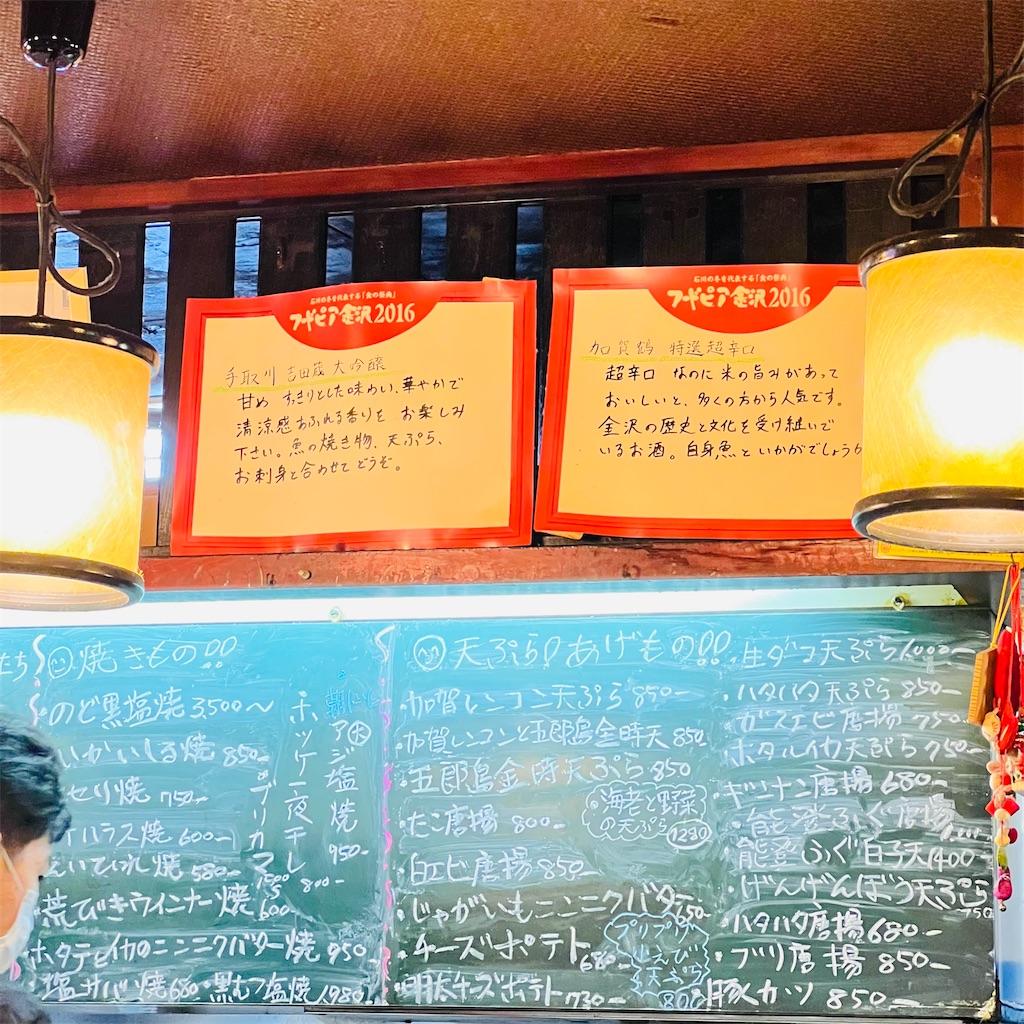 石川の冬を代表する「食の祭典」
フードピア金沢2016
手取川 吉田蔵 大吟醸
甘め すっきりとした味わい、華やかで
清涼感あふれる香りを お楽しみ
下さい。魚の焼き物、天ぷら、
お刺身と合わせてどうぞ。
石川の冬を代表する「食の祭典」
フードピア金沢2016
加賀鶴 特選超辛口
超辛口 なのに米の旨みがあって
おいしいと、多くの方から人気です。
金沢の歴史と文化を受け継いで
いるお酒。白身魚といかがでしょうか
焼きもの!!
のど黒塩焼 3,500〜
いかいしる焼 850-
セリ焼 750-
ハラス焼 600-
580-
荒びきウインナー焼 600-
ホタテとイカのニンニクバター焼 950-
・塩サバ焼 680 ・黒むつ塩焼 1,980-
・ブリカマ
ホッケ一夜干し 800-
アジ塩焼 950-
天ぷら!あげもの!!
・加賀レンコン天ぷら 850-
・加賀レンコンと五郎島金時天 850-
・五郎島金時天ぷら 850
・たこ唐揚 800-
・海老と野菜
の天ぷら 1280
・白エビ唐揚 850-
・じゃがいもニンニクバター 650-
・チーズポテト 680-
・明太チーズポテト 730-
プリプリ
天ぷら
800
・生ダコ天ぷら 1,000-
・ハタハタ天ぷら 850-
・ガスエビ唐揚 750-
・ホタルイカ天ぷら 750-
・ギンナン唐揚 680-
・能登ふぐ唐揚
・能登ふぐ白子天 1400
・げんげんぼう天ぷら 750-
・ハタハタ唐揚 680-
・ブツ唐揚 850-
・豚カツ 850-